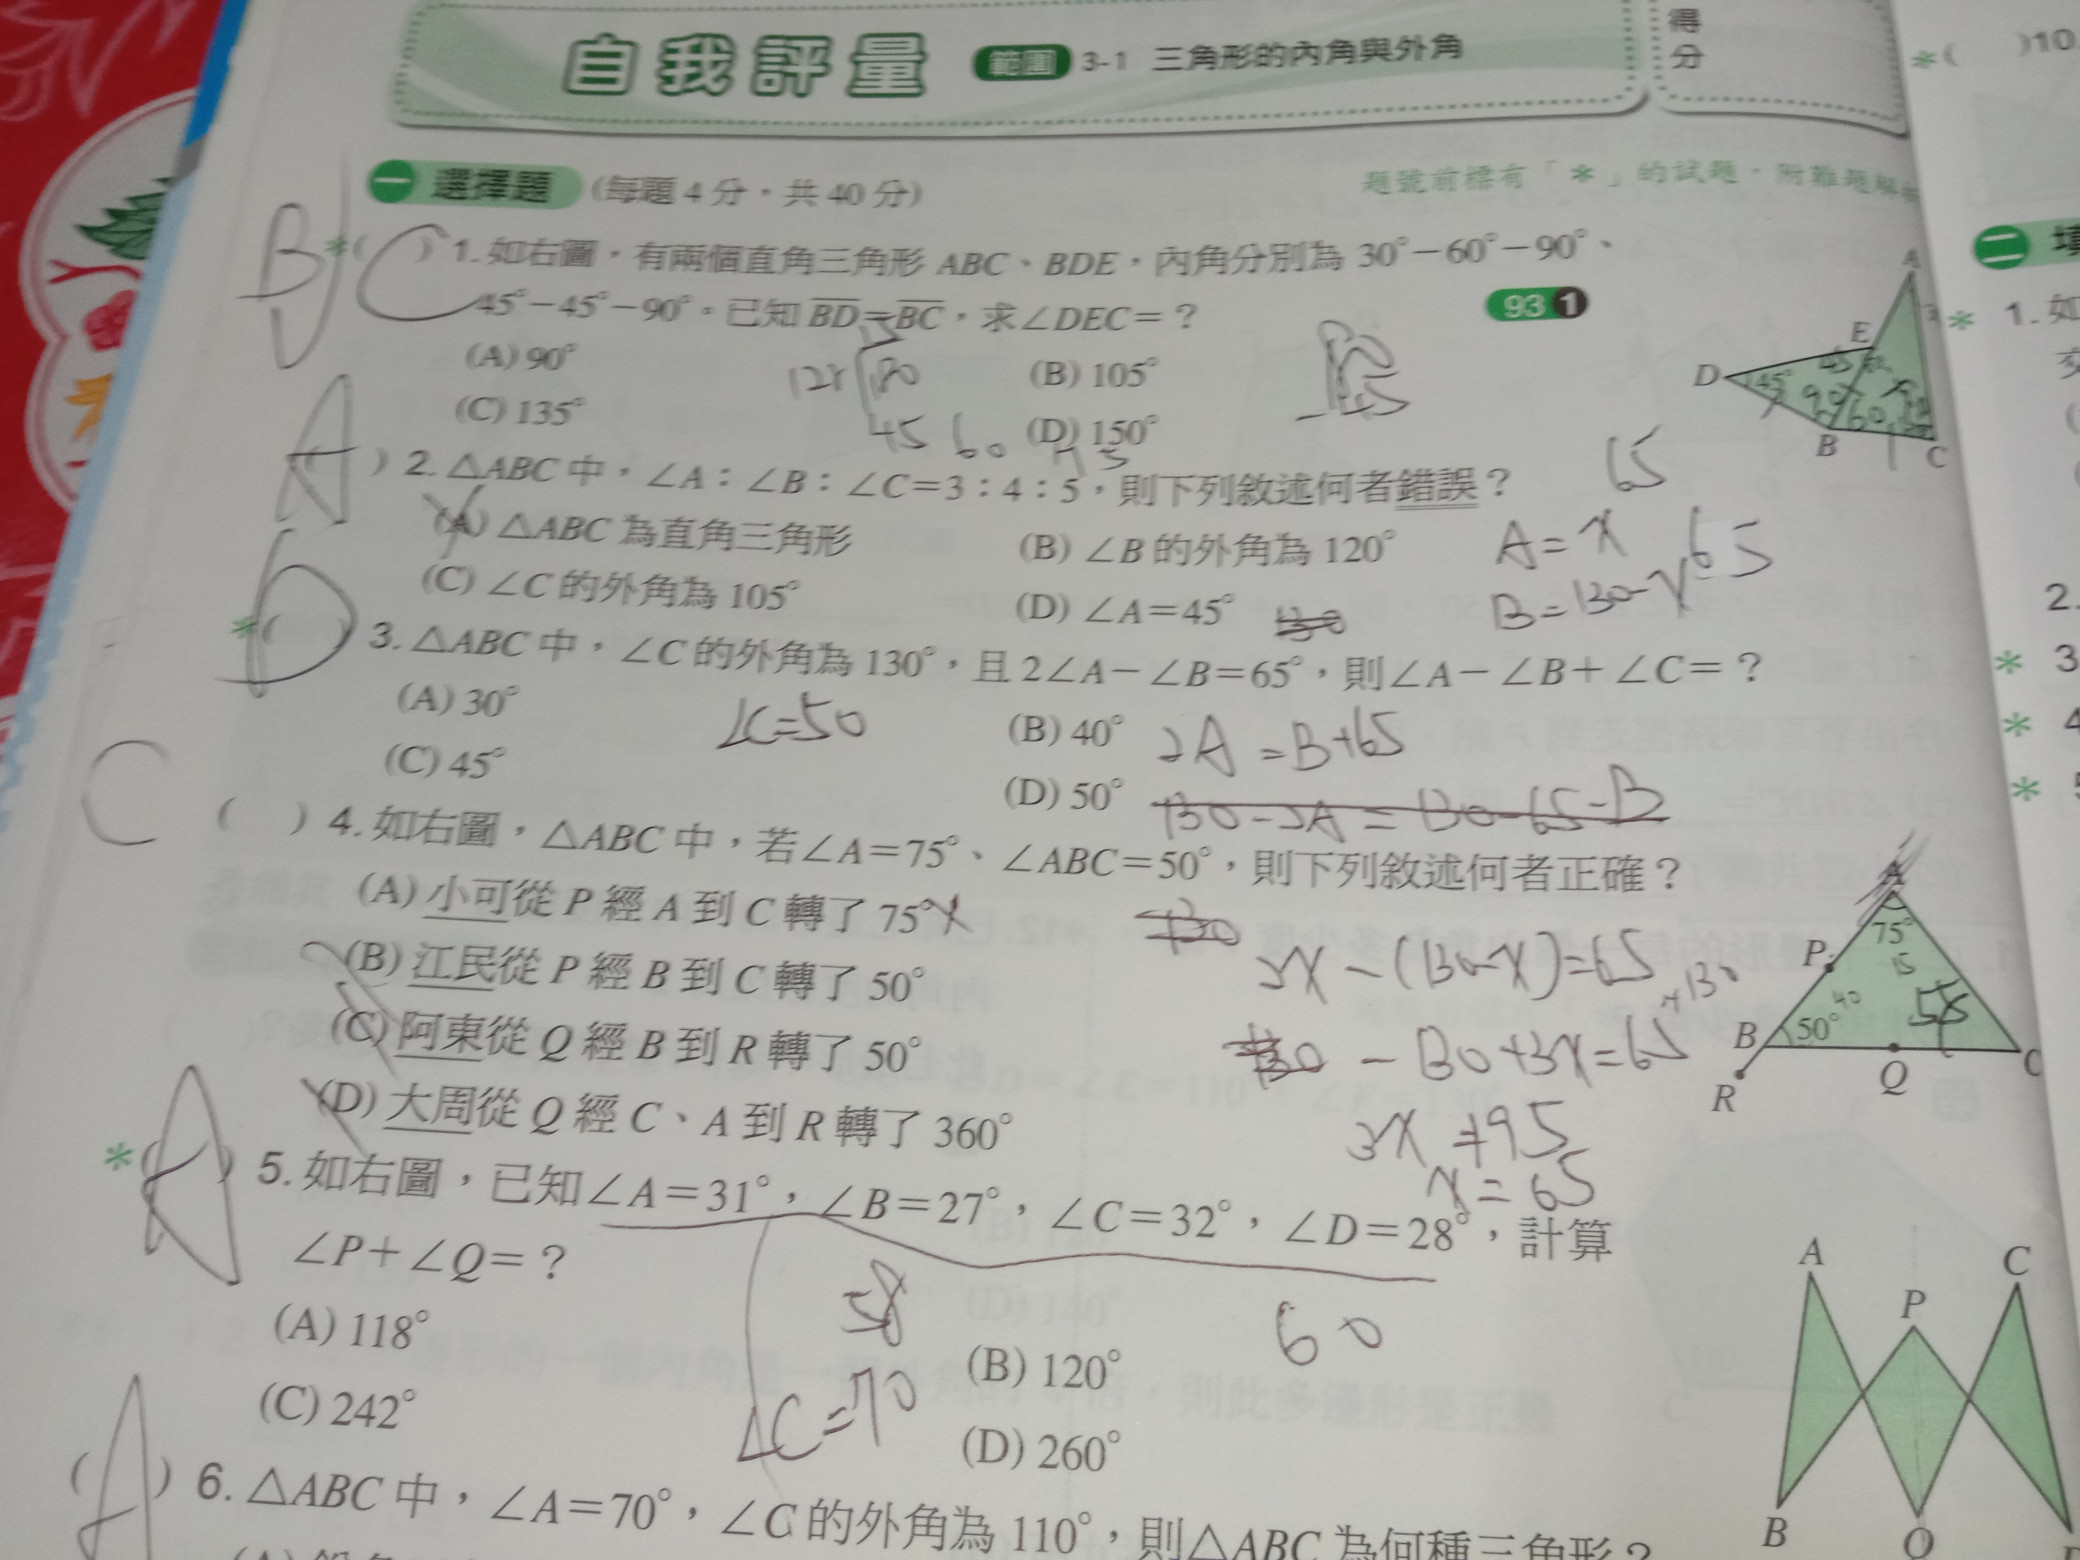 自我評量 範圍 3-1 三角形的內角與外角
得分
*( )10.
一 選擇題 (每題 4 分，共 40 分)
題號前標有「*」的試題，附難題解
*( ) 1. 如右圖，有兩個直角三角形 ABC、BDE，內角分別為 30°－60°－90°、
45°－45°－90°。已知 BD＝BC，求∠DEC＝？ 93 1
(A) 90° (B) 105°
(C) 135° (D) 150°
A
E
D
45°
B
C
45 60
B
C
A
) 2. △ABC 中，∠A：∠B：∠C＝3：4：5，則下列敘述何者錯誤？
65
(A) △ABC 為直角三角形 (B) ∠B 的外角為 120°
(C) ∠C 的外角為 105° (D) ∠A＝45°
A=x
65
B=130-x
D
*( ) 3. △ABC 中，∠C 的外角為 130°，且 2∠A－∠B＝65°，則∠A－∠B＋∠C＝？
(A) 30° (B) 40°
(C) 45° (D) 50°
∠C=50
2A=B+65
130-2A=130-65-B
C
( ) 4. 如右圖，△ABC 中，若∠A＝75°、∠ABC＝50°，則下列敘述何者正確？
(A) 小可從 P 經 A 到 C 轉了 75°
(B) 江民從 P 經 B 到 C 轉了 50°
(C) 阿東從 Q 經 B 到 R 轉了 50°
(D) 大周從 Q 經 C、A 到 R 轉了 360°
2x-(130-x)=65
+130
-130+3x=65
3x=195
x=65
A
75°
P
B
50°
R
Q
C
A
*( ) 5. 如右圖，已知∠A＝31°，∠B＝27°，∠C＝32°，∠D＝28°，計算
∠P＋∠Q＝？
(A) 118° (B) 120°
(C) 242° (D) 260°
58
60
∠C=70
A
P
C
B
Q
A
( ) 6. △ABC 中，∠A＝70°，∠C 的外角為 110°，則△ABC 為何種三角形？
二 填
* 1. 如
2.
* 3
* 4
*